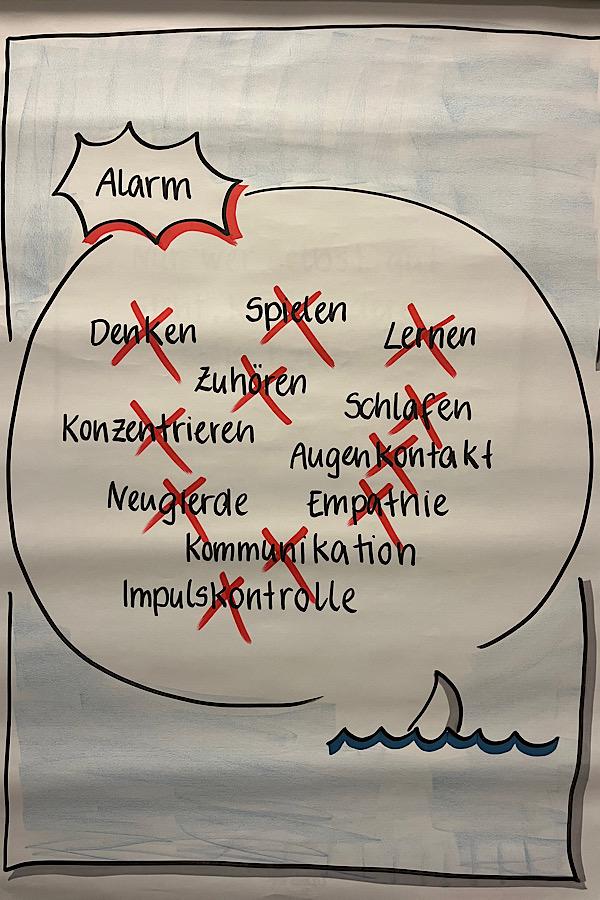 Alarm
Spielen
Denken
Lernen
Zuhören
Schlafen
Konzentrieren
Augenkontakt
Neugierde
Empathie
Kommunikation
Impulskontrolle